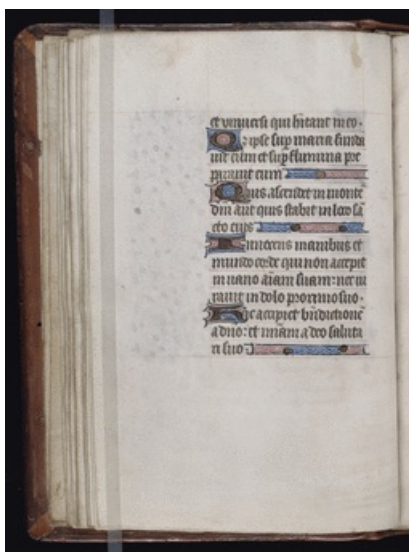 et vniuersi qui hitant in eo.
Quia ipse sup maria funda
uit eum et sup flumina pre
parauit eum
Quis ascendet in monte
dm aut quis stabit in loco sā
cto eius
Innocens manibus et
mundo corde qui non accepit
in uano aīam suam: nec iu
rauit in dolo proximo suo.
Hic accipiet bn̄dictionē
a dno: et mīam a deo saluta
ri suo